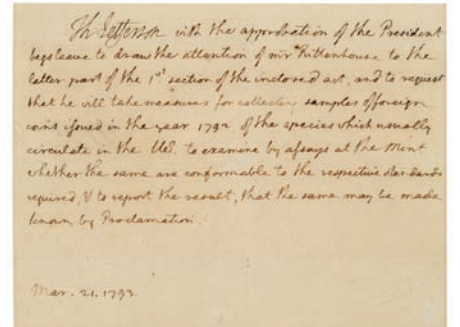 Th Jefferson with the approbation of the President
begs leave to draw the attention of mr Rittenhouse to the
latter part of the 1st section of the inclosed act, and to request
that he will take measures for collecting samples of foreign
coins issued in the year 1792. of the species which usually
circulate in the US. to examine by assays at the Mint
whether the same are conformable to the respective standards
required, & to report the result, that the same may be made
known by Proclamation.
Mar. 21. 1793.